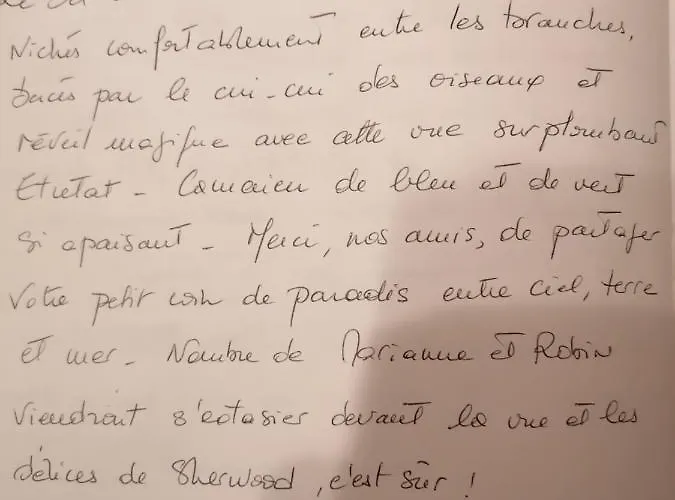 Nichés confortablement entre les branches,
bercés par le cui-cui des oiseaux et
réveil magifique avec cette vue surplombant
Etretat - Camaïeu de bleu et de vert
si apaisant - Merci, nos amis, de partager
votre petit coin de paradis entre ciel, terre
et mer - Nombre de Marianne et Robin
viendront s'extasier devant la vue et les
délices de Sherwood, c'est sûr !